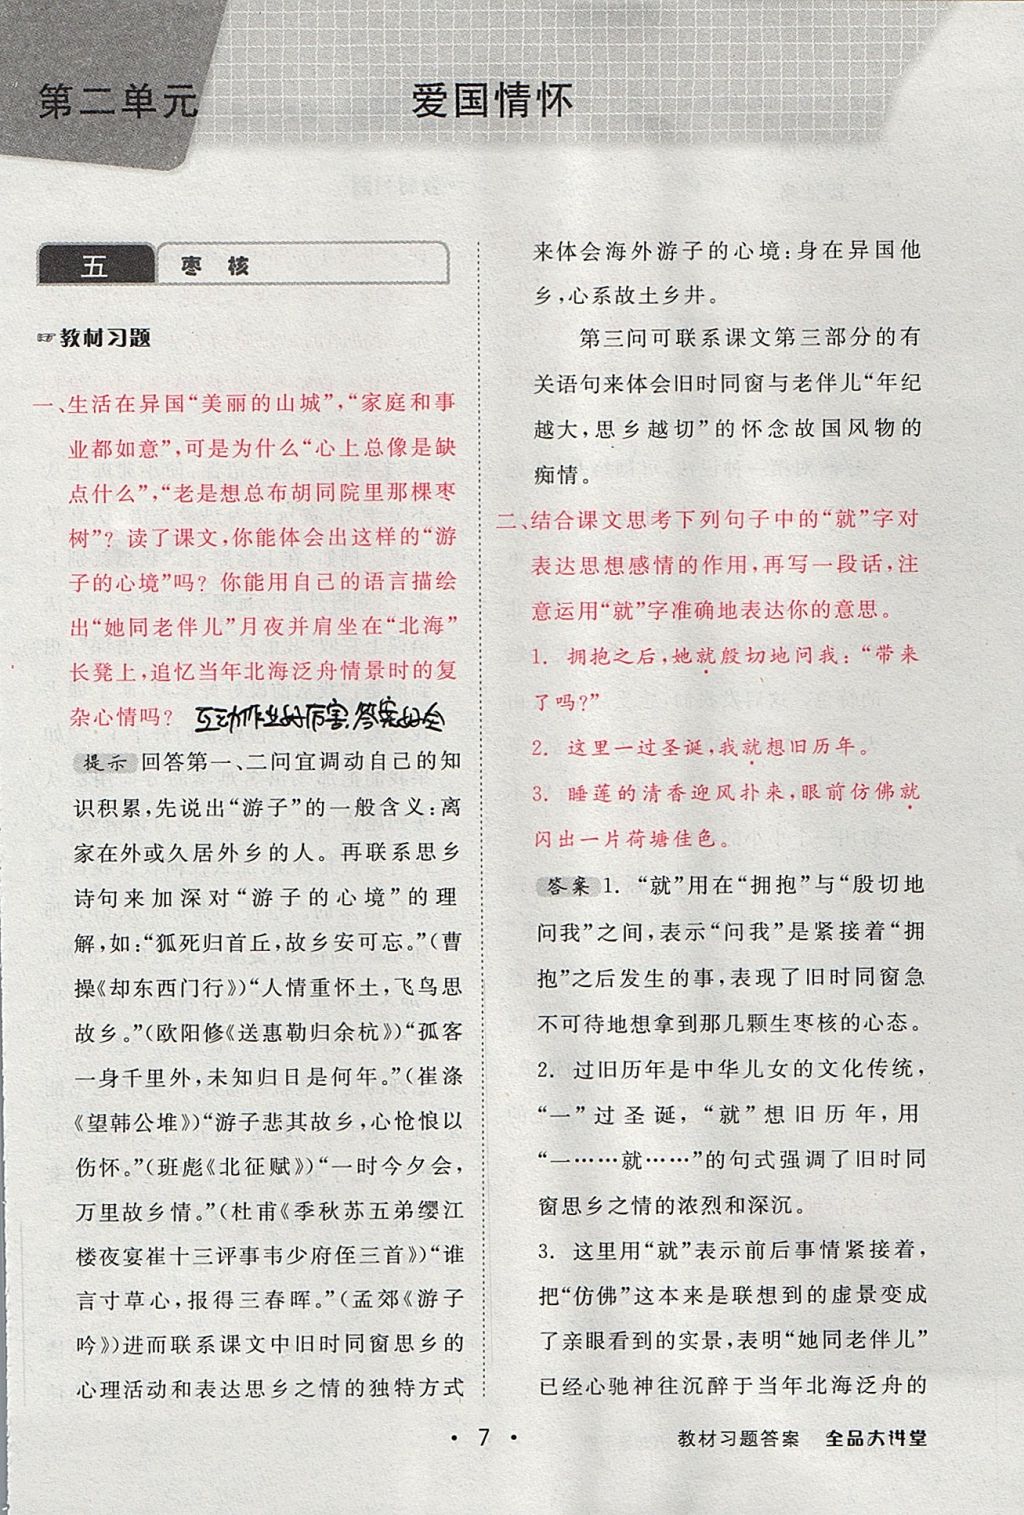 第二单元
爱国情怀
五
枣 核
☞教材习题
一、生活在异国“美丽的山城”，“家庭和事
业都如意”，可是为什么“心上总像是缺
点什么”，“老是想总布胡同院里那棵枣
树”？读了课文，你能体会出这样的“游
子的心境”吗？你能用自己的语言描绘
出“她同老伴儿”月夜并肩坐在“北海”
长凳上，追忆当年北海泛舟情景时的复
杂心情吗？ 互动作业好厉害,答案好全
提示 回答第一、二问宜调动自己的知
识积累，先说出“游子”的一般含义：离
家在外或久居外乡的人。再联系思乡
诗句来加深对“游子的心境”的理
解，如：“狐死归首丘，故乡安可忘。”(曹
操《却东西门行》)“人情重怀土，飞鸟思
故乡。”(欧阳修《送惠勒归余杭》)“孤客
一身千里外，未知归日是何年。”(崔涤
《望韩公堆》)“游子悲其故乡，心怆悢以
伤怀。”(班彪《北征赋》)“一时今夕会，
万里故乡情。”(杜甫《季秋苏五弟缨江
楼夜宴崔十三评事韦少府侄三首》)“谁
言寸草心，报得三春晖。”(孟郊《游子
吟》)进而联系课文中旧时同窗思乡的
心理活动和表达思乡之情的独特方式
来体会海外游子的心境：身在异国他
乡，心系故土乡井。
第三问可联系课文第三部分的有
关语句来体会旧时同窗与老伴儿“年纪
越大，思乡越切”的怀念故国风物的
痴情。
二、结合课文思考下列句子中的“就”字对
表达思想感情的作用，再写一段话，注
意运用“就”字准确地表达你的意思。
1. 拥抱之后，她就殷切地问我：“带来
了吗?”
2. 这里一过圣诞，我就想旧历年。
3. 睡莲的清香迎风扑来，眼前仿佛就
闪出一片荷塘佳色。
答案 1. “就”用在“拥抱”与“殷切地
问我”之间，表示“问我”是紧接着“拥
抱”之后发生的事，表现了旧时同窗急
不可待地想拿到那几颗生枣核的心态。
2. 过旧历年是中华儿女的文化传统，
“一”过圣诞，“就”想旧历年，用
“一……就……”的句式强调了旧时同
窗思乡之情的浓烈和深沉。
3. 这里用“就”表示前后事情紧接着，
把“仿佛”这本来是联想到的虚景变成
了亲眼看到的实景，表明“她同老伴儿”
已经心驰神往沉醉于当年北海泛舟的
· 7 ·
教材习题答案 全品大讲堂